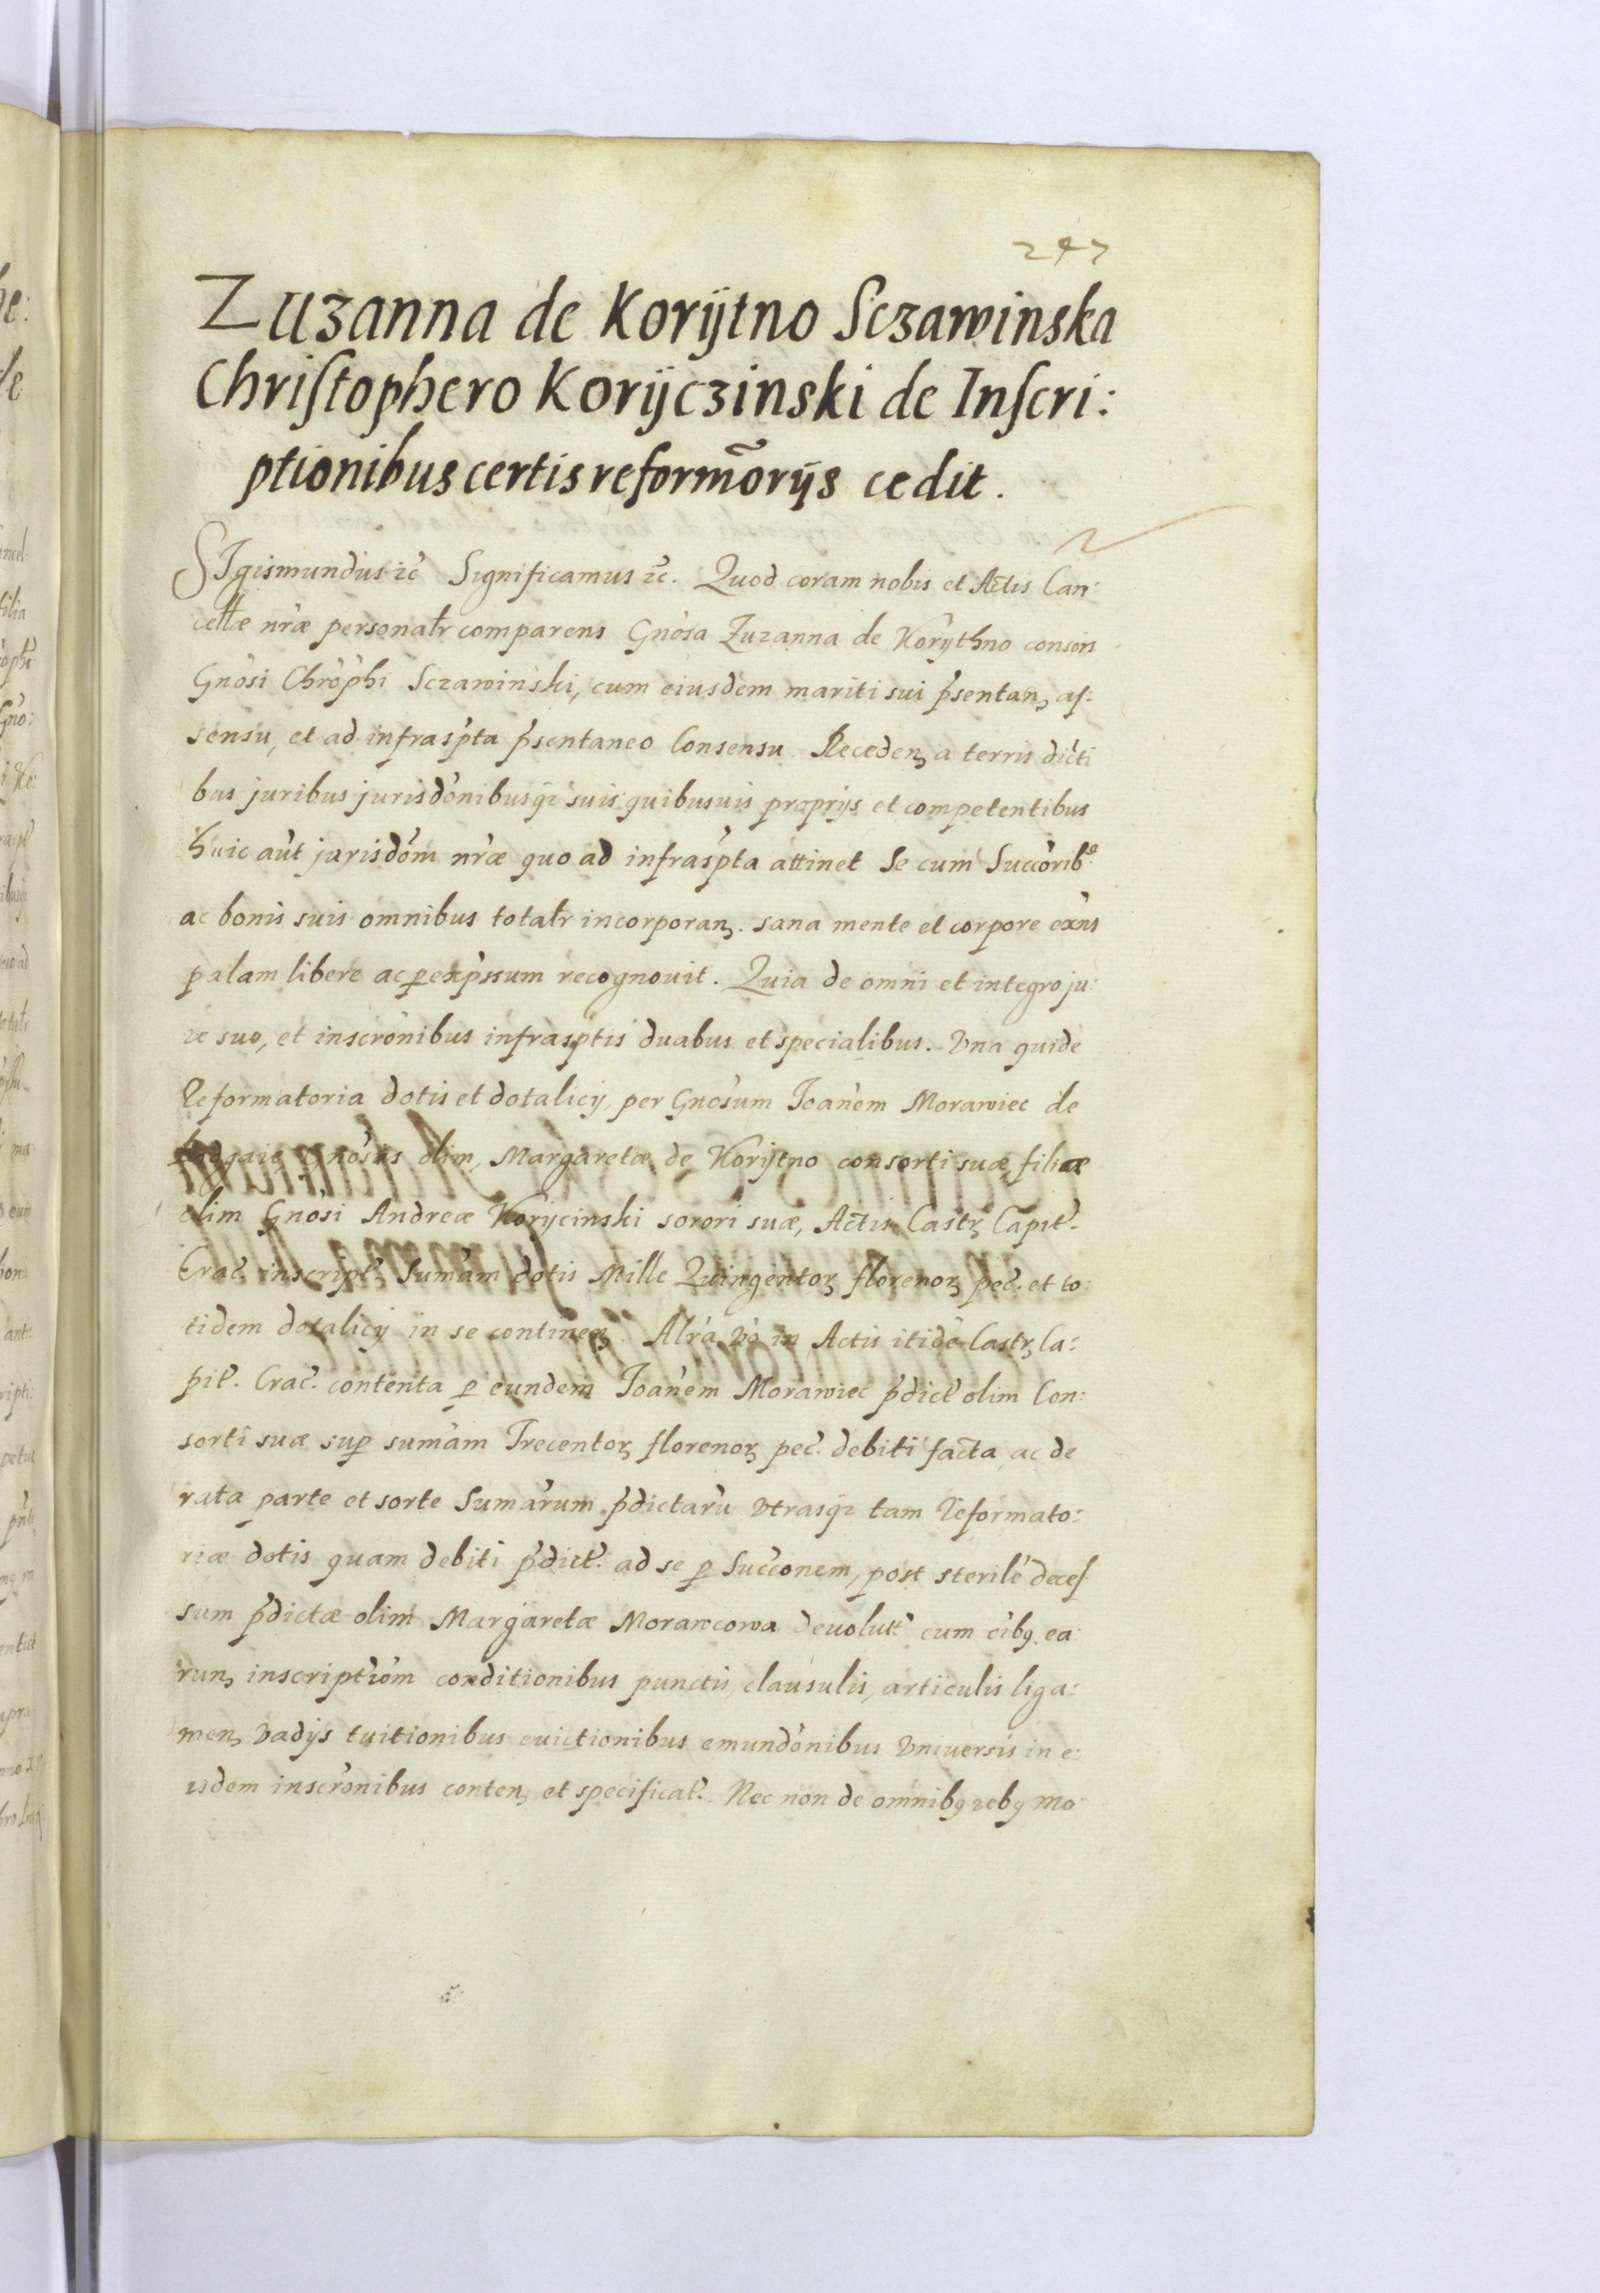 247
Zuzanna de Korÿtno Sczawinska
Chriſtophero Korÿczinski de Inſcri:
ptionibus certis reform̃orÿs cedit.
SIgismundus ꝛc̃ Significamus ꝛc̃. Quod coram nobis et Actis Can:
cellæ nr̃æ personalr̃ comparens Gnõsa Zuzanna de Korÿthno consors
Gnõsi Chrõphi Sczawinski, cum eiusdem mariti sui p̃sentan, aſ:
sensu, et ad infrasp̃ta p̃sentaneo Consensu Receden, a terris dicti
bus juribus jurisdõnibusq; suis quibusuis proprÿs et competentibus
huic aũt jurisdõm nr̃æ quo ad infrasp̃ta attinet Se cum Succõrib9
ac bonis suis omnibus totalr̃ incorporan,. sana mente et corpore exñs
palam libere ac ꝑ exp̃ssum recognouit. Quia de omni et integro ju:
re suo, et inscrõnibus infrasptis duabus et specialibus. Vna quidẽ
Reformatoria dotis et dotalicÿ, per Gnõsum Joañem Morawiec de
olim, Margaretæ de Korÿtno consorti suæ, filiæ
olim Gnõsi Andreæ Korÿcinski sorori suæ, Actis Castr, Capit̃.
Crac̃. inscript̃. Sum̃am dotis Mille Quingentor, florenor, pec̃. et to:
tidem dotalicÿ in se continen,. Alr̃a võ in Actis itidẽ Castr, Ca:
pit̃. Crac̃. contenta ꝑ eundem Joañem Morawiec p̃dict̃ olim Con:
sorti suæ suꝑ sum̃am Trecentor, florenor, pec̃. debiti facta, ac de
rata parte et sorte Sum̃arum p̃dictarũ vtrasq; tam Reformato:
riæ dotis quam debiti p̃dict̃. ad se ꝑ Succ̃onem, post sterilẽ deceſ
sum p̃dictæ olim Margaretæ Morawcowa Deuolut̃ cum õib9 ea:
run, inscriptiõm conditionibus punctis, clausulis, articulis liga:
men, vadÿs tuitionibus euictionibus emundõnibus vniuersis in e:
isdem inscrõnibus conten, et specificat̃. Nec non de omnib9 reb9 mo